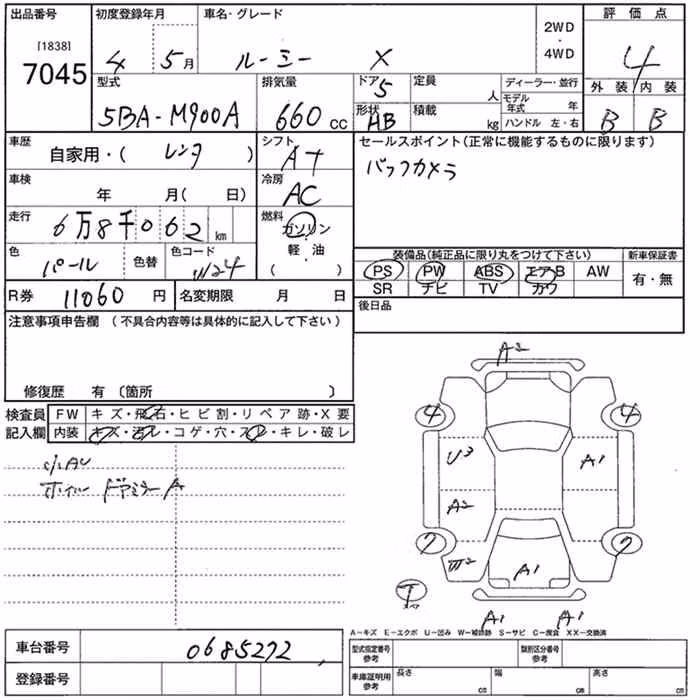 出品番号 初度登録年月 車名・グレード 2WD・4WD 評価点
[1838]
7045 4 5月 ルーミー X 4
型式 排気量 ドア 5 定員 人 ディーラー・並行 外装 内装
5BA-M900A 660 cc 形状 HB 積載 kg モデル年式 年 B B
ハンドル 左・右
車歴 自家用・( レンタ ) シフト AT セールスポイント(正常に機能するものに限ります)
バックカメラ
車検 年 月( 日) 冷房 AC
走行 6万8千062 km 燃料 ガソリン
軽・油
( )
色 パール 色替 色コード W24 装備品(純正品に限り丸をつけて下さい) 新車保証書
PS PW ABS エアB AW 有・無
SR ナビ TV カワ
R券 11060 円 名変期限 月 日 後日品
注意事項申告欄 (不具合内容等は具体的に記入して下さい)
修復歴 有 〔箇所 〕
検査員 FW キズ・飛石・ヒビ割・リペア跡・X要
記入欄 内装 キズ・汚レ・コゲ・穴・スレ・キレ・破レ
ホイル ドアミラーA
A2
4 4
U3 A1
A2
7 7
A1
T
A1 A1
A-キズ E-エクボ U-凹み W-補修跡 S-サビ C-腐食 XX-交換済
車台番号 0685272
登録番号
型式指定番号 参考 類別区分番号 参考
車庫証明用 参考 長さ cm 幅 cm 高さ cm